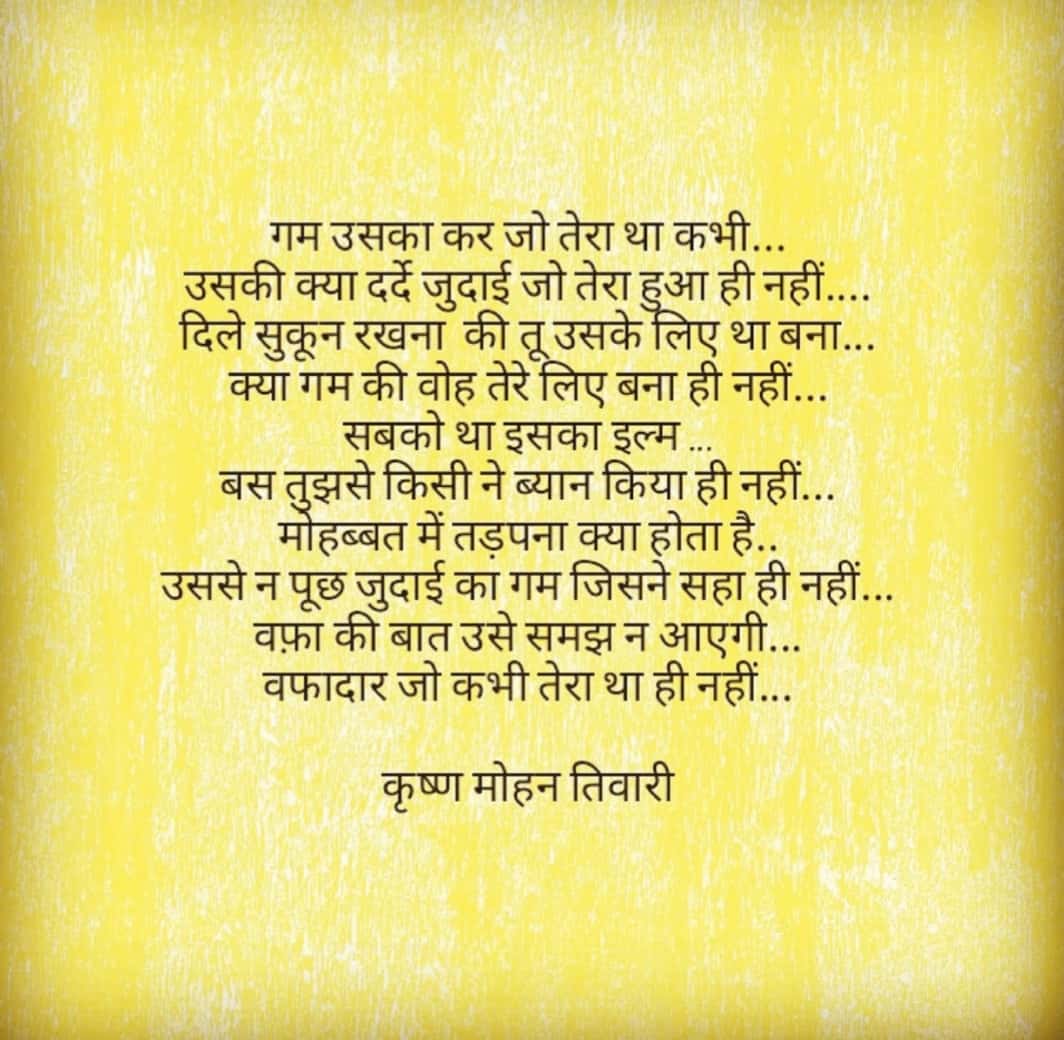 गम उसका कर जो तेरा था कभी...
उसकी क्या दर्दे जुदाई जो तेरा हुआ ही नहीं....
दिले सुकून रखना  की तू उसके लिए था बना...
क्या गम की वोह तेरे लिए बना ही नहीं...
सबको था इसका इल्म ...
बस तुझसे किसी ने ब्यान किया ही नहीं...
मोहब्बत में तड़पना क्या होता है..
उससे न पूछ जुदाई का गम जिसने सहा ही नहीं...
वफ़ा की बात उसे समझ न आएगी...
वफादार जो कभी तेरा था ही नहीं...
कृष्ण मोहन तिवारी